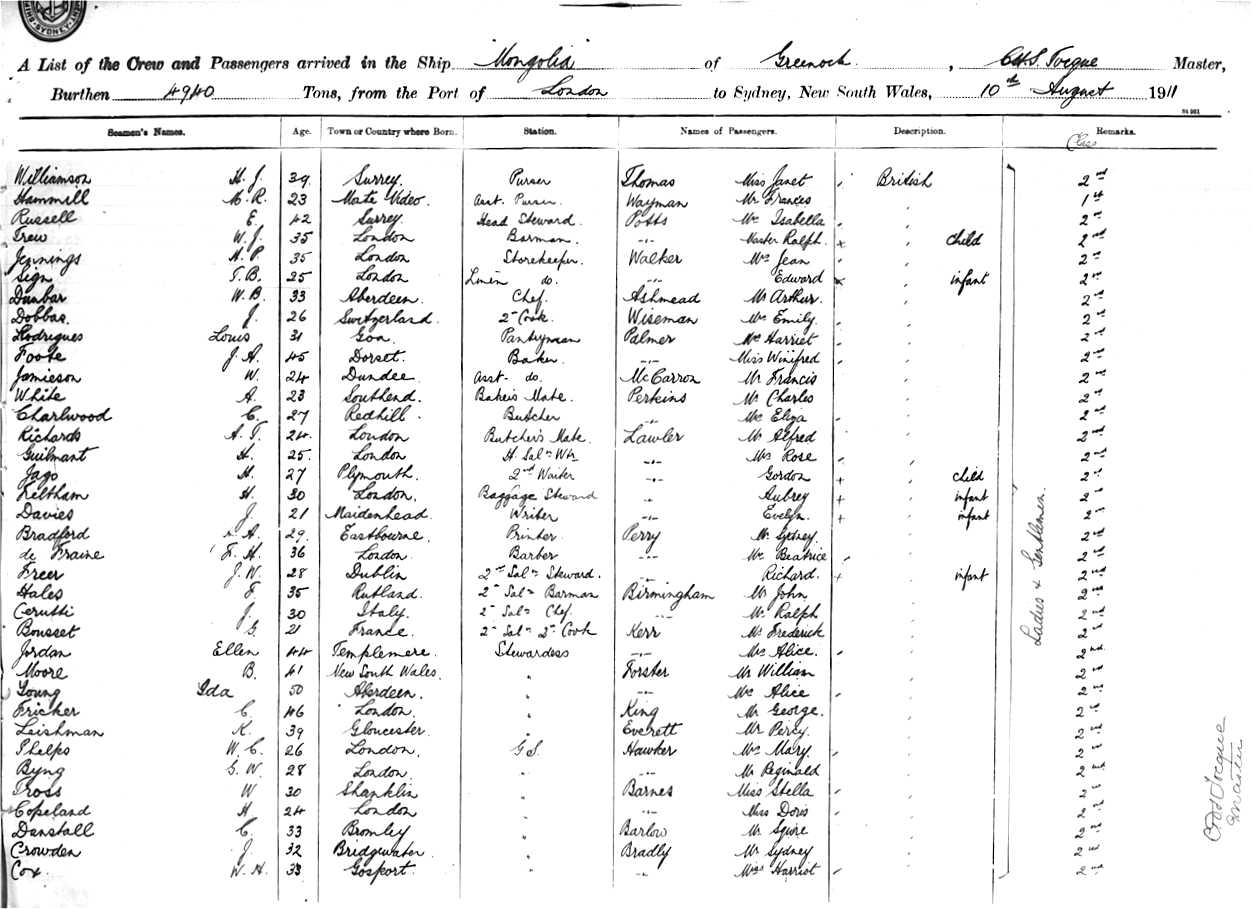 SYDNEY
A List of the Crew and Passengers arrived in the Ship Mongolia of Greenock, Master,
Burthen 4940 Tons, from the Port of London to Sydney, New South Wales, 10th August 1911
Seamen's Names. Age. Town or Country where Born. Station. Names of Passengers. Description. Remarks.
Class
Williamson H. J. 39 Surrey. Purser Thomas Miss Janet British 2nd
Hammill R. 23 Monte Video. Asst. Purser. Wayman Mr Frances 1st
Russell E. 42 Surrey. Head Steward Potts Mrs Isabella 2nd
Trew W. J. 35 London Barman. -"- Master Ralph. + child 2nd
Jennings A. P. 35 London Storekeeper. Walker Mrs Jean 2nd
Sign T. B. 25 London Linen do. -"- Edward x infant 2nd
Dunbar W. B. 33 Aberdeen. Chef. Ashmead Mr Arthur. 2nd
Dobbas. J. 26 Switzerland. 2nd Cook Wiseman Mrs Emily. 2nd
Rodrigues Louis 31 Goa. Pantryman Palmer Mrs Harriet 2nd
Foote J. A. 45 Dorset. Baker. -"- Miss Winifred 2nd
Jamieson W. 24 Dundee. Asst. do. McCarron Mr Francis 2nd
White A. 23 Southend. Bakers Mate. Perkins Mr Charles 2nd
Charlwood C. 27 Redhill. Butcher -"- Mrs Eliza 2nd
Richards A. T. 24. London Butcher's Mate. Lawler Mr Alfred 2nd
Guilmant H. 25. London H. Saln Wtr -"- Mrs Rose 2nd
Jago H. 27 Plymouth. 2nd Waiter -"- Gordon + child 2nd
Feltham H. 30 London. Baggage Steward -"- Aubrey + infant 2nd
Davies J. 21 Maidenhead. Writer -"- Evelyn. + infant 2nd
Bradford A. 29. Eastbourne. Printer Perry Mr Sydney. 2nd
de Fraine F. H. 36 London. Barber -"- Mrs Beatrice 2nd
Freer J. W. 28 Dublin 2nd Saln Steward. -"- Richard. + infant 2nd
Hales F. 35 Rutland. 2nd Saln Barman Birmingham Mr John 2nd
Cerutti J. 30 Italy. 2nd Saln Chef. -"- Mr Ralph 2nd
Bousset G. 21 France. 2nd Saln 2nd Cook Kerr Mr Frederick 2nd
Jordan Ellen 44 Templemere. Stewardess -"- Mrs Alice. 2nd
Moore B. 41 New South Wales. " Forster Mr William 2nd
Young Ida 50 Aberdeen. " -"- Mrs Alice 2nd
Fricker C. 46 London. " King Mr George. 2nd
Leishman K. 39 Gloucester. " Everett Mr Percy. 2nd
Phelps W. C. 26 London. G.S. Hawker Mrs Mary. 2nd
Byng G. W. 28 London. " -"- Mr Reginald 2nd
Tross W 30 Shanklin " Barnes Miss Stella 2nd
Copeland H 24 London " -"- Miss Doris 2nd
Danstall C. 33 Bromley " Barlow Mr Squire 2nd
Crowden J. 32 Bridgwater. " Bradly Mr Sydney 2nd
Cox. W. H. 33 Gosport. " -"- Miss Harriot 2nd
Ladies & Gentlemen.
Master